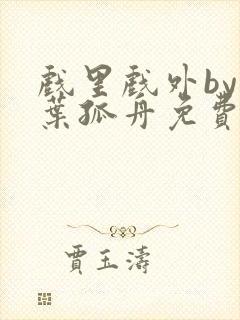 戲里戲外by
葉孤舟免費
賈玉濤